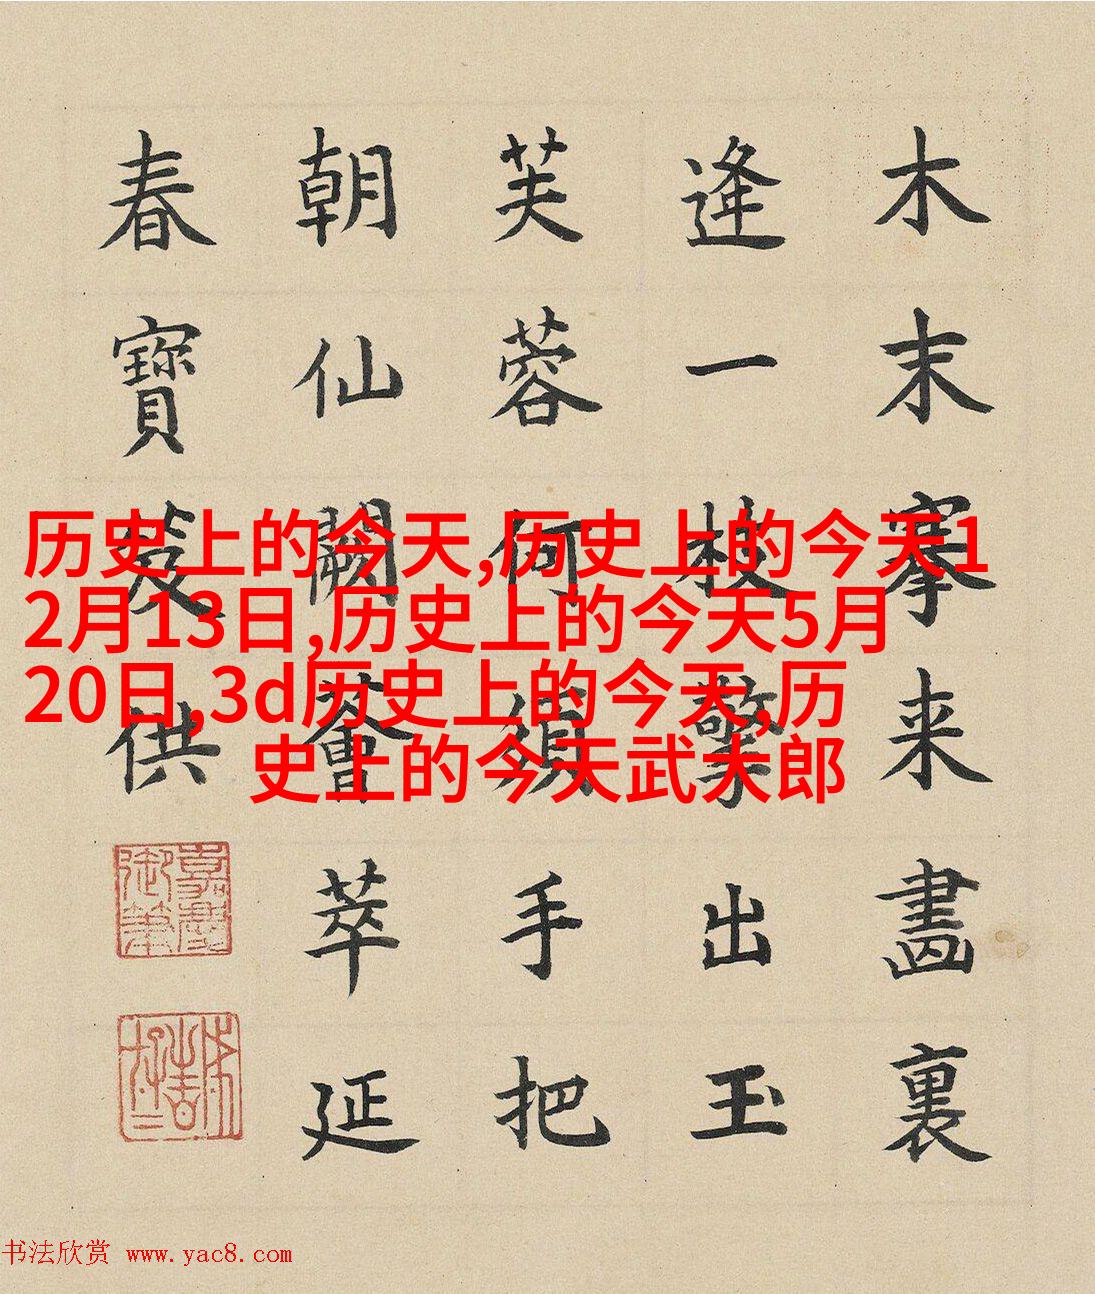 历史上的今天,历史上的今天1
2月13日,历史上的今天5月
20日,3d历史上的今天,历
史上的今天武大郎
木末搴来畫裏
逢一枝擎出玉
芙蓉何須手把
朝仙闕薈萃延
春寶供
嘉慶御筆
书法欣赏 www.yac8.com